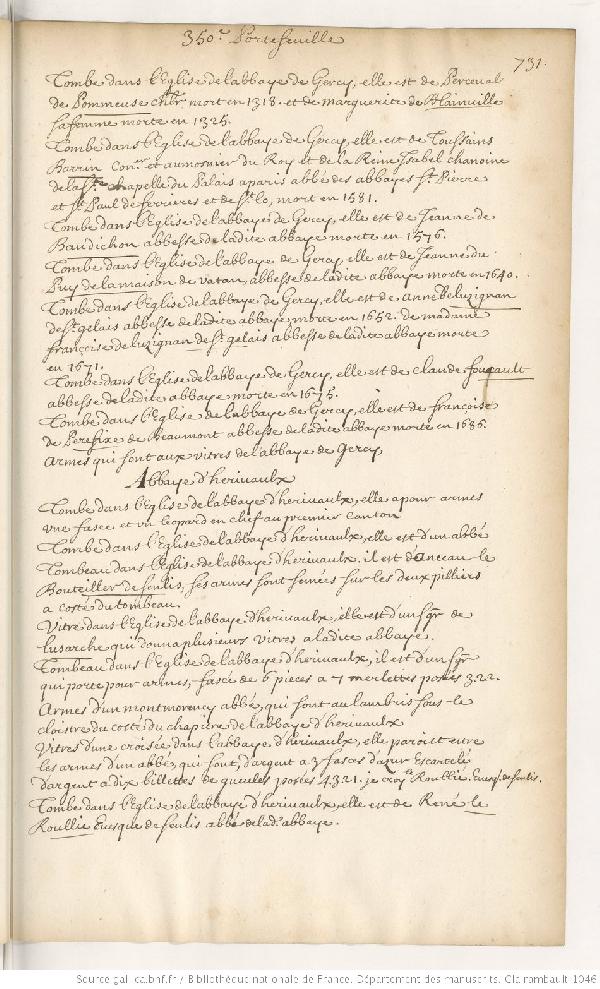 350.e Portefeuille
731.
Tombe dans l'Eglise de l'abbaye de Gercy, elle est de Perceval
de Pommeuse chlr mort en 1318. et de marguerite de Blainville
sa femme morte en 1325.
Tombe dans l'Eglise de l'abbaye de Gercy, elle est de Toussains
Barrin Con.er et aumosnier du Roy et de la Reine Isabel chanoine
de la Ste chapelle du Palais a paris abbé des abbayes St. Pierre
et St Paul de ferrieres et de St lo, mort en 1581.
Tombe dans l'Eglise de l'abbaye de Gercy, elle est de Jeanne de
Baudichon abbesse de ladite abbaye morte en 1576.
Tombe dans l'Eglise de l'abbaye de Gercy elle est de Jeanne du
Puy de la maison de vatan, abbesse de ladite abbaye morte en 1640.
Tombe dans l'Eglise de l'abbaye de Gercy, elle est de anne de luzignan
de St. gelais abbesse de ladite abbaye, morte en 1652. de madame
françoise de luzignan de St. gelais abbesse de ladite abbaye morte
en 1671.
Tombe dans l'Eglise de l'abbaye de Gercy, elle est de claude foucault
abbesse de ladite abbaye morte en 1675.
Tombe dans l'Eglise de l'abbaye de Gercy, elle est de françoise
de Perefixe de Beaumont abbesse de ladite abbaye morte en 1686.
Armes qui sont aux vitres de l'abbaye de Gercy
Abbaye d'herivaulx
Tombe dans l'Eglise de l'abbaye d'herivaulx, elle a pour armes
vne fasce et vn leopard en chef au premier canton
Tombe dans l'Eglise de l'abbaye d'herivaulx, elle est d'un abbé
Tombeau dans l'Eglise de l'abbaye d'herivaulx. il est d'anceau le
Bouteiller de senlis, ses armes sont semées sur les deux pilliers
a costé du tombeau.
Vitre dans l'Eglise de l'abbaye d'herivaulx, elle est d'un sgr de
lusarche qui donna plusieurs vitres a ladite abbaye.
Tombeau dans l'Eglise de l'abbaye d'herivaulx, il est d'un sgr
qui porte pour armes, fascé de 6 pieces a 7 merlettes posées 3.2.2.
Armes d'un montmorency abbé, qui sont au lambris sous le
cloistre du costé du chapitre de l'abbaye d'herivaulx
Vitres d'une croisée dans l'abbaye d'herivaulx, elle paroist estre
les armes d'un abbé, qui sont, d'argent a 3 fasces d'azur Escartelé
d'argent a dix billettes de gueules posées 4.3.2.1. je croy le Roullie Evesq. de senlis.
Tombe dans l'Eglise de l'abbaye d'herivaulx, elle est de René le
Roullie Evesque de senlis abbé de lad. abbaye.
Source gallica.bnf.fr / Bibliothèque nationale de France. Département des manuscrits. Clairambault 1046